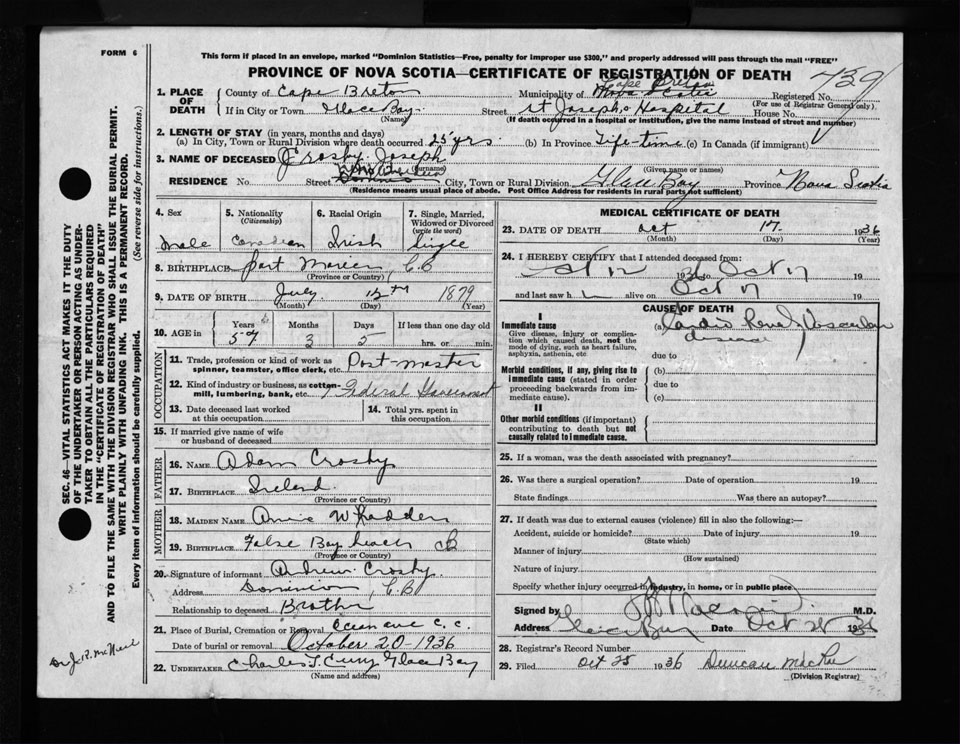 FORM 6
This form if placed in an envelope, marked "Dominion Statistics—Free, penalty for improper use $300," and properly addressed will pass through the mail "FREE"
PROVINCE OF NOVA SCOTIA—CERTIFICATE OF REGISTRATION OF DEATH
739
1. PLACE OF DEATH County of Cape Breton Municipality of Cape Breton Registered No.
(For use of Registrar General only)
If in City or Town Glace Bay Street St Josephs Hospital House No.
(Name) (If death occurred in a hospital or institution, give the name instead of street and number)
2. LENGTH OF STAY (in years, months and days)
(a) In City, Town or Rural Division where death occurred 25 yrs (b) In Province Life-time (c) In Canada (if immigrant)
3. NAME OF DECEASED Crosby Joseph
(Surname) (Given name or names)
RESIDENCE No. Street City, Town or Rural Division Glace Bay Province Nova Scotia
(Residence means usual place of abode. Post Office Address for residents in rural parts not sufficient)
4. Sex Male
5. Nationality (Citizenship) Canadian
6. Racial Origin Irish
7. Single, Married, Widowed or Divorced (write the word) Single
8. BIRTHPLACE Port Morien, C.B
(Province or Country)
9. DATE OF BIRTH July 12th 1879
(Month) (Day) (Year)
10. AGE in Years 57 Months 3 Days 5 If less than one day old hrs. or min.
OCCUPATION
11. Trade, profession or kind of work as spinner, teamster, office clerk, etc. Post-master
12. Kind of industry or business, as cotton-mill, lumbering, bank, etc. Federal Government
13. Date deceased last worked at this occupation
14. Total yrs. spent in this occupation
15. If married give name of wife or husband of deceased
FATHER
16. NAME Adam Crosby
17. BIRTHPLACE Ireland
(Province or Country)
MOTHER
18. MAIDEN NAME Annie
19. BIRTHPLACE False Bay Beach CB
(Province or Country)
20. Signature of informant Andrew Crosby
Address Dominion, C.B
Relationship to deceased Brother
21. Place of Burial, Cremation or Removal Ocean ave C.C.
Date of burial or removal October 20-1936
22. UNDERTAKER Charles J. Curry Glace Bay
(Name and address)
MEDICAL CERTIFICATE OF DEATH
23. DATE OF DEATH Oct 17 1936
(Month) (Day) (Year)
24. I HEREBY CERTIFY that I attended deceased from:
Oct 12 1936 to Oct 17 19
and last saw h alive on Oct 17 19
CAUSE OF DEATH
I
Immediate cause
Give disease, injury or complication which caused death, not the mode of dying, such as heart failure, asphyxia, asthenia, etc
(a) Cardio Renal Vascular disease
due to
Morbid conditions, if any, giving rise to immediate cause (stated in order proceeding backwards from immediate cause).
(b)
due to
(c)
II
Other morbid conditions (if important) contributing to death but not causally related to immediate cause.
25. If a woman, was the death associated with pregnancy?
26. Was there a surgical operation? Date of operation 19
State findings Was there an autopsy?
27. If death was due to external causes (violence) fill in also the following:—
Accident, suicide or homicide? Date of injury 19
(State which)
Manner of injury
(How sustained)
Nature of injury
Specify whether injury occurred in industry, in home, or in public place
Signed by M.D.
Address Glace Bay Date Oct 1936
28. Registrar's Record Number
29. Filed Oct 25 1936 Duncan MacRae
(Division Registrar)
SEC. 46—VITAL STATISTICS ACT MAKES IT THE DUTY
OF THE UNDERTAKER OR PERSON ACTING AS UNDER-
TAKER TO OBTAIN ALL THE PARTICULARS REQUIRED
IN THE "CERTIFICATE OF REGISTRATION OF DEATH"
AND TO FILE THE SAME WITH THE DIVISION REGISTRAR WHO SHALL ISSUE THE BURIAL PERMIT.
WRITE PLAINLY WITH UNFADING INK. THIS IS A PERMANENT RECORD.
Every item of information should be carefully supplied. (See reverse side for instructions.)
Dr J.R. McNeil